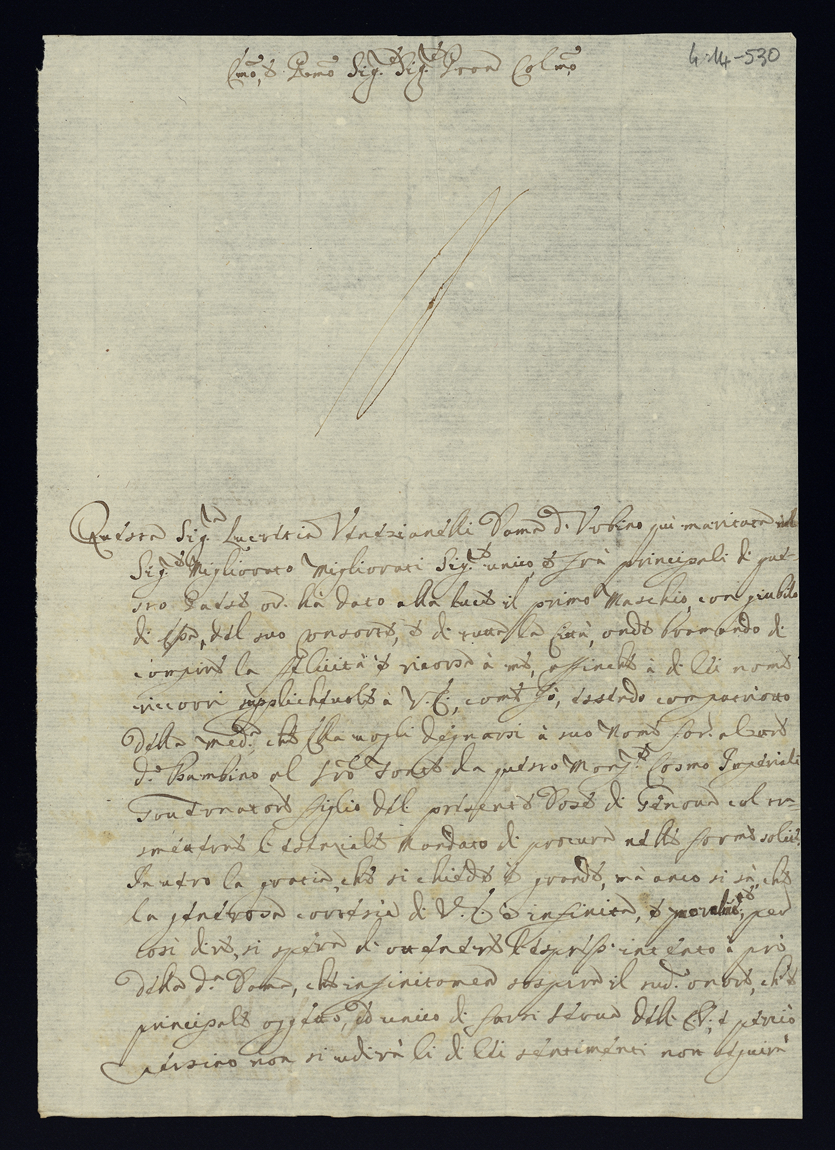 4:14-530
Emo, e Rmo Sig.re Sig.re Pron Colmo
Questa Sig.ra Lucretia Venezianelli Dama d'Urbino qui maritata nel
Sig.re Migliorato Migliorati Sig.re unico e frà principali di que-
sto Paese or hà dato alla luce il primo Maschio, con giubilo
di essa, del suo consorte, e di tutta la Città, onde bramando di
compire la felicità è ricorsa à me, affinche à di lei nome
riccorri supplichevole à V. E., come fò, essendo compatriotto
della med.a che Ella vogli degnarsi à suo Nome far alzare
d.o Bambino al Fonte da questo Monsig.re Cosmo Imperiali
Governatore figlio del presente Dose di Genova col tr-
smettere l'essenziale Mandato di procura nelle forme solite.
In vero la gratia, che si chiede è grande, ma anco si sà, che
la generosa cortesia di V. E. è infinita, e per
così dire, si spera di ottenere l' intento à prò
della d.a Dama, che infinitamen sospira il sud.o onore, che
principale oggetto, ed unico di farsi serva dell' E. V., e perciò
persino non si udirà li di lei sentimenti non seguirà